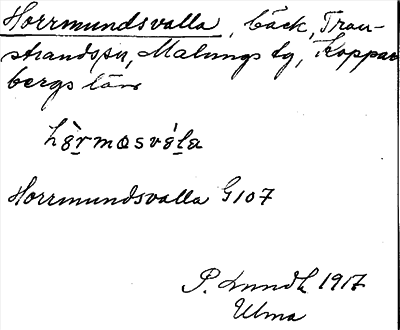 Horrmundsvalla, bäck, Tran-
strands sn, Malungs tg, Koppar
bergs län
hèrmosvála
Horrmundsvalla G107
P. Lundh 1917
Ulma